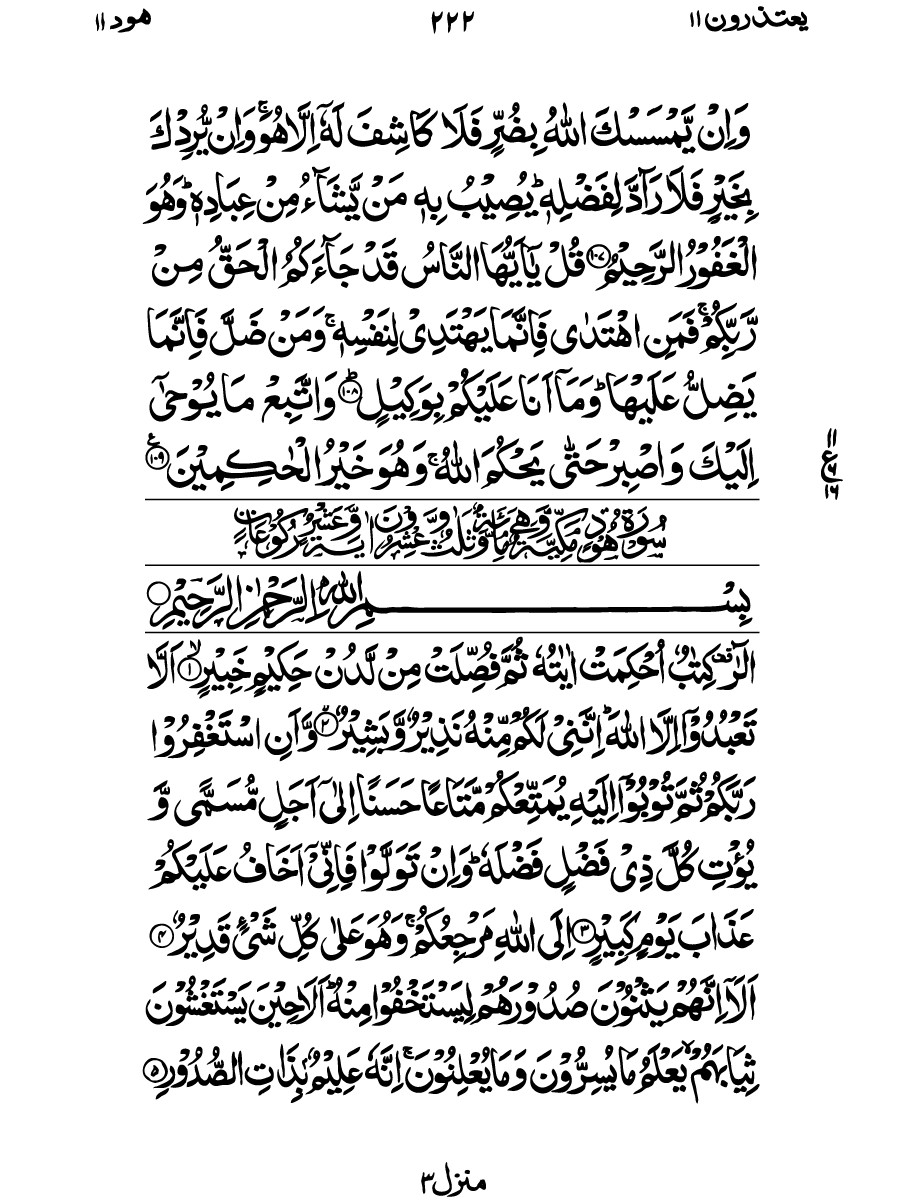 یعتذرون ۱۱
۲۲۲
ھود ۱۱
وَاِنْ یَّمْسَسْكَ اللّٰهُ بِضُرٍّ فَلَا كَاشِفَ لَهٗۤ اِلَّا هُوَ ۚ وَاِنْ یُّرِدْكَ
بِخَیْرٍ فَلَا رَآدَّ لِفَضْلِهٖ ؕ یُصِیْبُ بِهٖ مَنْ یَّشَآءُ مِنْ عِبَادِهٖ ؕ وَهُوَ
الْغَفُوْرُ الرَّحِیْمُ ﴿۱۰۷﴾ قُلْ یٰۤاَیُّهَا النَّاسُ قَدْ جَآءَكُمُ الْحَقُّ مِنْ
رَّبِّكُمْ ۚ فَمَنِ اهْتَدٰی فَاِنَّمَا یَهْتَدِیْ لِنَفْسِهٖ ۚ وَمَنْ ضَلَّ فَاِنَّمَا
یَضِلُّ عَلَیْهَا ؕ وَمَاۤ اَنَا عَلَیْكُمْ بِوَكِیْلٍ ﴿۱۰۸﴾ؕ وَاتَّبِعْ مَا یُوْحٰۤی
اِلَیْكَ وَاصْبِرْ حَتّٰی یَحْكُمَ اللّٰهُ ۚ وَهُوَ خَیْرُ الْحٰكِمِیْنَ ﴿۱۰۹﴾ ع
۱۱
ع
۱۶
سُوْرَةُ هُوْدٍ مَكِّیَّةٌ وَّهِیَ مِائَةٌ وَّثَلٰثٌ وَّعِشْرُوْنَ اٰیَةً وَّعَشْرُ رُكُوْعَاتٍ
بِسْمِ اللّٰهِ الرَّحْمٰنِ الرَّحِیْمِ
الٓرٰ ۫ كِتٰبٌ اُحْكِمَتْ اٰیٰتُهٗ ثُمَّ فُصِّلَتْ مِنْ لَّدُنْ حَكِیْمٍ خَبِیْرٍ ﴿۱﴾ۙ اَلَّا
تَعْبُدُوْۤا اِلَّا اللّٰهَ ؕ اِنَّنِیْ لَكُمْ مِّنْهُ نَذِیْرٌ وَّبَشِیْرٌ ﴿۲﴾ۙ وَّاَنِ اسْتَغْفِرُوْا
رَبَّكُمْ ثُمَّ تُوْبُوْۤا اِلَیْهِ یُمَتِّعْكُمْ مَّتَاعًا حَسَنًا اِلٰۤی اَجَلٍ مُّسَمًّی وَّ
یُؤْتِ كُلَّ ذِیْ فَضْلٍ فَضْلَهٗ ؕ وَاِنْ تَوَلَّوْا فَاِنِّیْۤ اَخَافُ عَلَیْكُمْ
عَذَابَ یَوْمٍ كَبِیْرٍ ﴿۳﴾ اِلَی اللّٰهِ مَرْجِعُكُمْ ۚ وَهُوَ عَلٰی كُلِّ شَیْءٍ قَدِیْرٌ ﴿۴﴾
اَلَاۤ اِنَّهُمْ یَثْنُوْنَ صُدُوْرَهُمْ لِیَسْتَخْفُوْا مِنْهُ ؕ اَلَا حِیْنَ یَسْتَغْشُوْنَ
ثِیَابَهُمْ ۙ یَعْلَمُ مَا یُسِرُّوْنَ وَمَا یُعْلِنُوْنَ ۚ اِنَّهٗ عَلِیْمٌۢ بِذَاتِ الصُّدُوْرِ ﴿۵﴾
منزل ۳